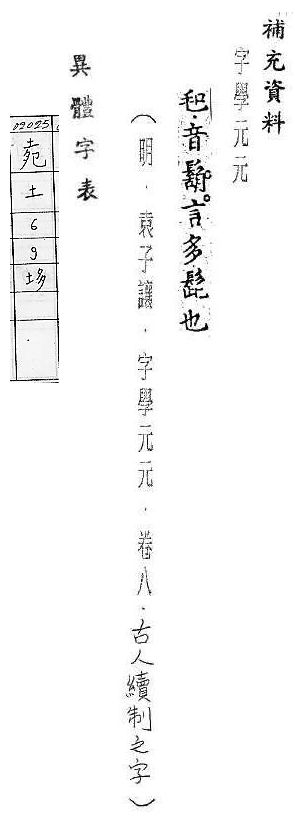 補充資料
字學元元
音鬍。言多髭也
（明．袁子讓．字學元元．卷八．古人續制之字）
異體字表
02025
土
6
9
垑